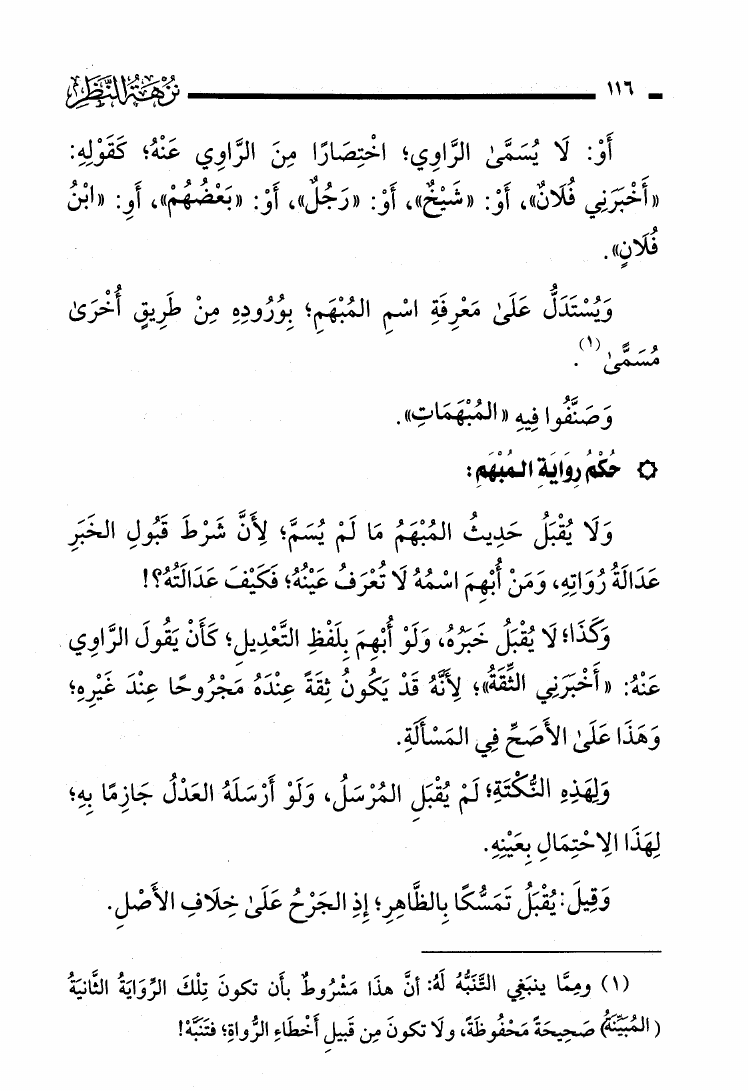 ١١٦ نُزْهَةُ النَّظَرِ
أَوْ: لَا يُسَمَّىٰ الرَّاوِي؛ اخْتِصَارًا مِنَ الرَّاوِي عَنْهُ؛ كَقَوْلِهِ:
«أَخْبَرَنِي فُلَانٌ»، أَوْ: «شَيْخٌ»، أَوْ: «رَجُلٌ»، أَوْ: «بَعْضُهُمْ»، أَوِ: «ابْنُ
فُلَانٍ».
وَيُسْتَدَلُّ عَلَىٰ مَعْرِفَةِ اسْمِ المُبْهَمِ؛ بِوُرُودِهِ مِنْ طَرِيقٍ أُخْرَىٰ
مُسَمًّىٰ(١).
وَصَنَّفُوا فِيهِ «المُبْهَمَاتِ».
۞ حُكْمُ رِوَايَةِ المُبْهَمِ:
وَلَا يُقْبَلُ حَدِيثُ المُبْهَمُ مَا لَمْ يُسَمَّ؛ لِأَنَّ شَرْطَ قَبُولِ الخَبَرِ
عَدَالَةُ رُوَاتِهِ، وَمَنْ أُبْهِمَ اسْمُهُ لَا تُعْرَفُ عَيْنُهُ؛ فَكَيْفَ عَدَالَتُهُ؟!
وَكَذَا؛ لَا يُقْبَلُ خَبَرُهُ، وَلَوْ أُبْهِمَ بِلَفْظِ التَّعْدِيلِ؛ كَأَنْ يَقُولَ الرَّاوِي
عَنْهُ: «أَخْبَرَنِي الثِّقَةُ»؛ لِأَنَّهُ قَدْ يَكُونُ ثِقَةً عِنْدَهُ مَجْرُوحًا عِنْدَ غَيْرِهِ؛
وَهَذَا عَلَىٰ الأَصَحِّ فِي المَسْأَلَةِ.
وَلِهَذِهِ النُّكْتَةِ؛ لَمْ يُقْبَلِ المُرْسَلُ، وَلَوْ أَرْسَلَهُ العَدْلُ جَازِمًا بِهِ؛
لِهَذَا الِاحْتِمَالِ بِعَيْنِهِ.
وَقِيلَ: يُقْبَلُ تَمَسُّكًا بِالظَّاهِرِ؛ إِذِ الجَرْحُ عَلَىٰ خِلَافِ الأَصْلِ.
(١) ومِمَّا ينبَغِي التَّنَبُّهُ لَهُ: أنَّ هذَا مَشْرُوطٌ بأَن تكونَ تِلْكَ الرِّوَايَةُ الثَّانيَةُ
(المُبَيِّنَةُ) صَحِيحَةً مَحْفُوظَةً، ولَا تكونَ مِن قَبيلِ أَخْطَاءِ الرُّواةِ؛ فتَنَبَّهْ!